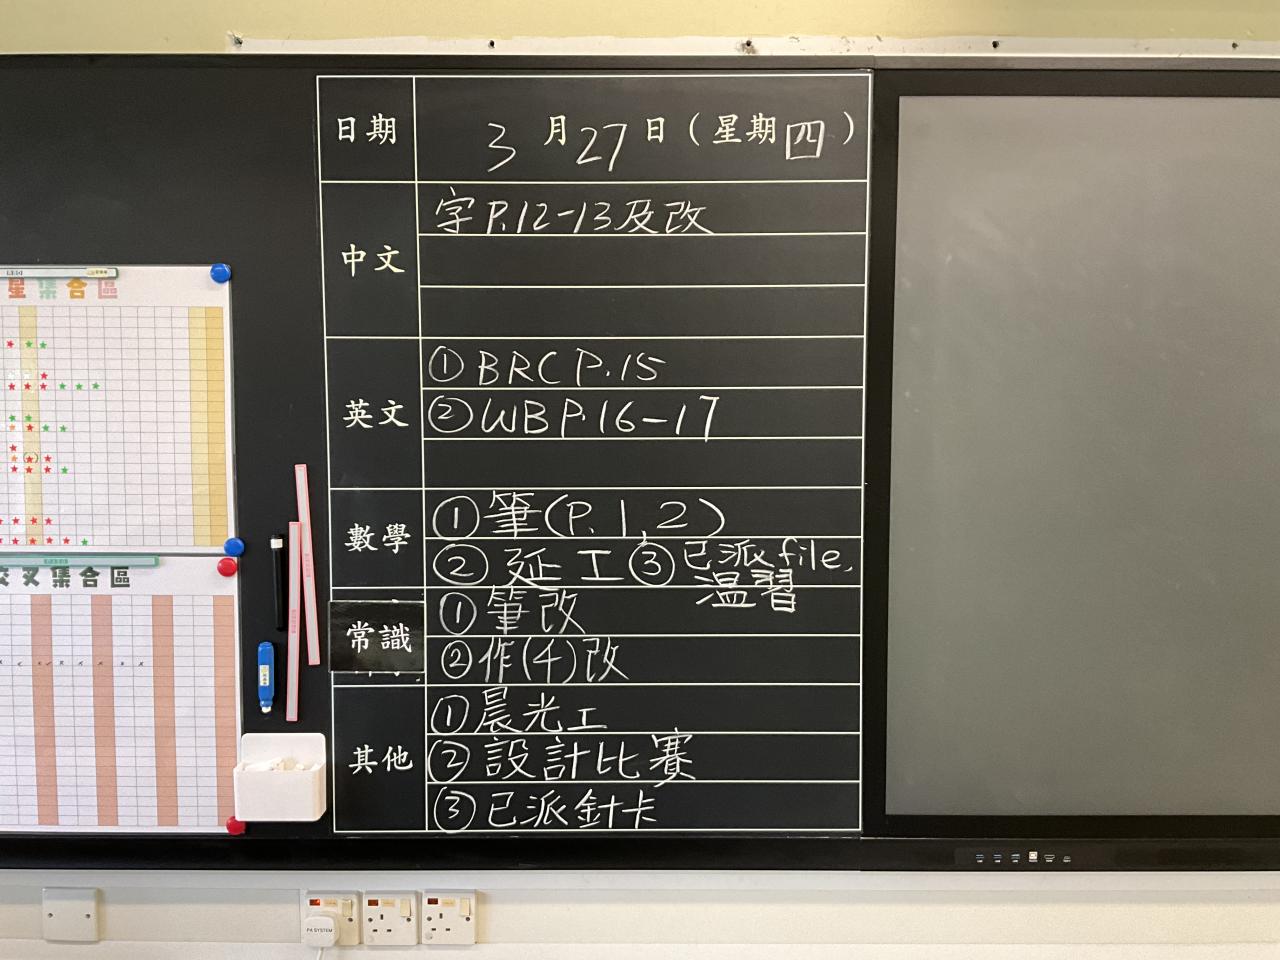 日期 3月27日(星期四)
中文
字P.12-13及改
英文
①BRC P.15
②WB P.16-17
數學
①筆(P.1,2)
②延工③已派file,
溫習
常識
①筆改
②作(4)改
其他
①晨光工
②設計比賽
③已派針卡
星集合區
交叉集合區
PA SYSTEM